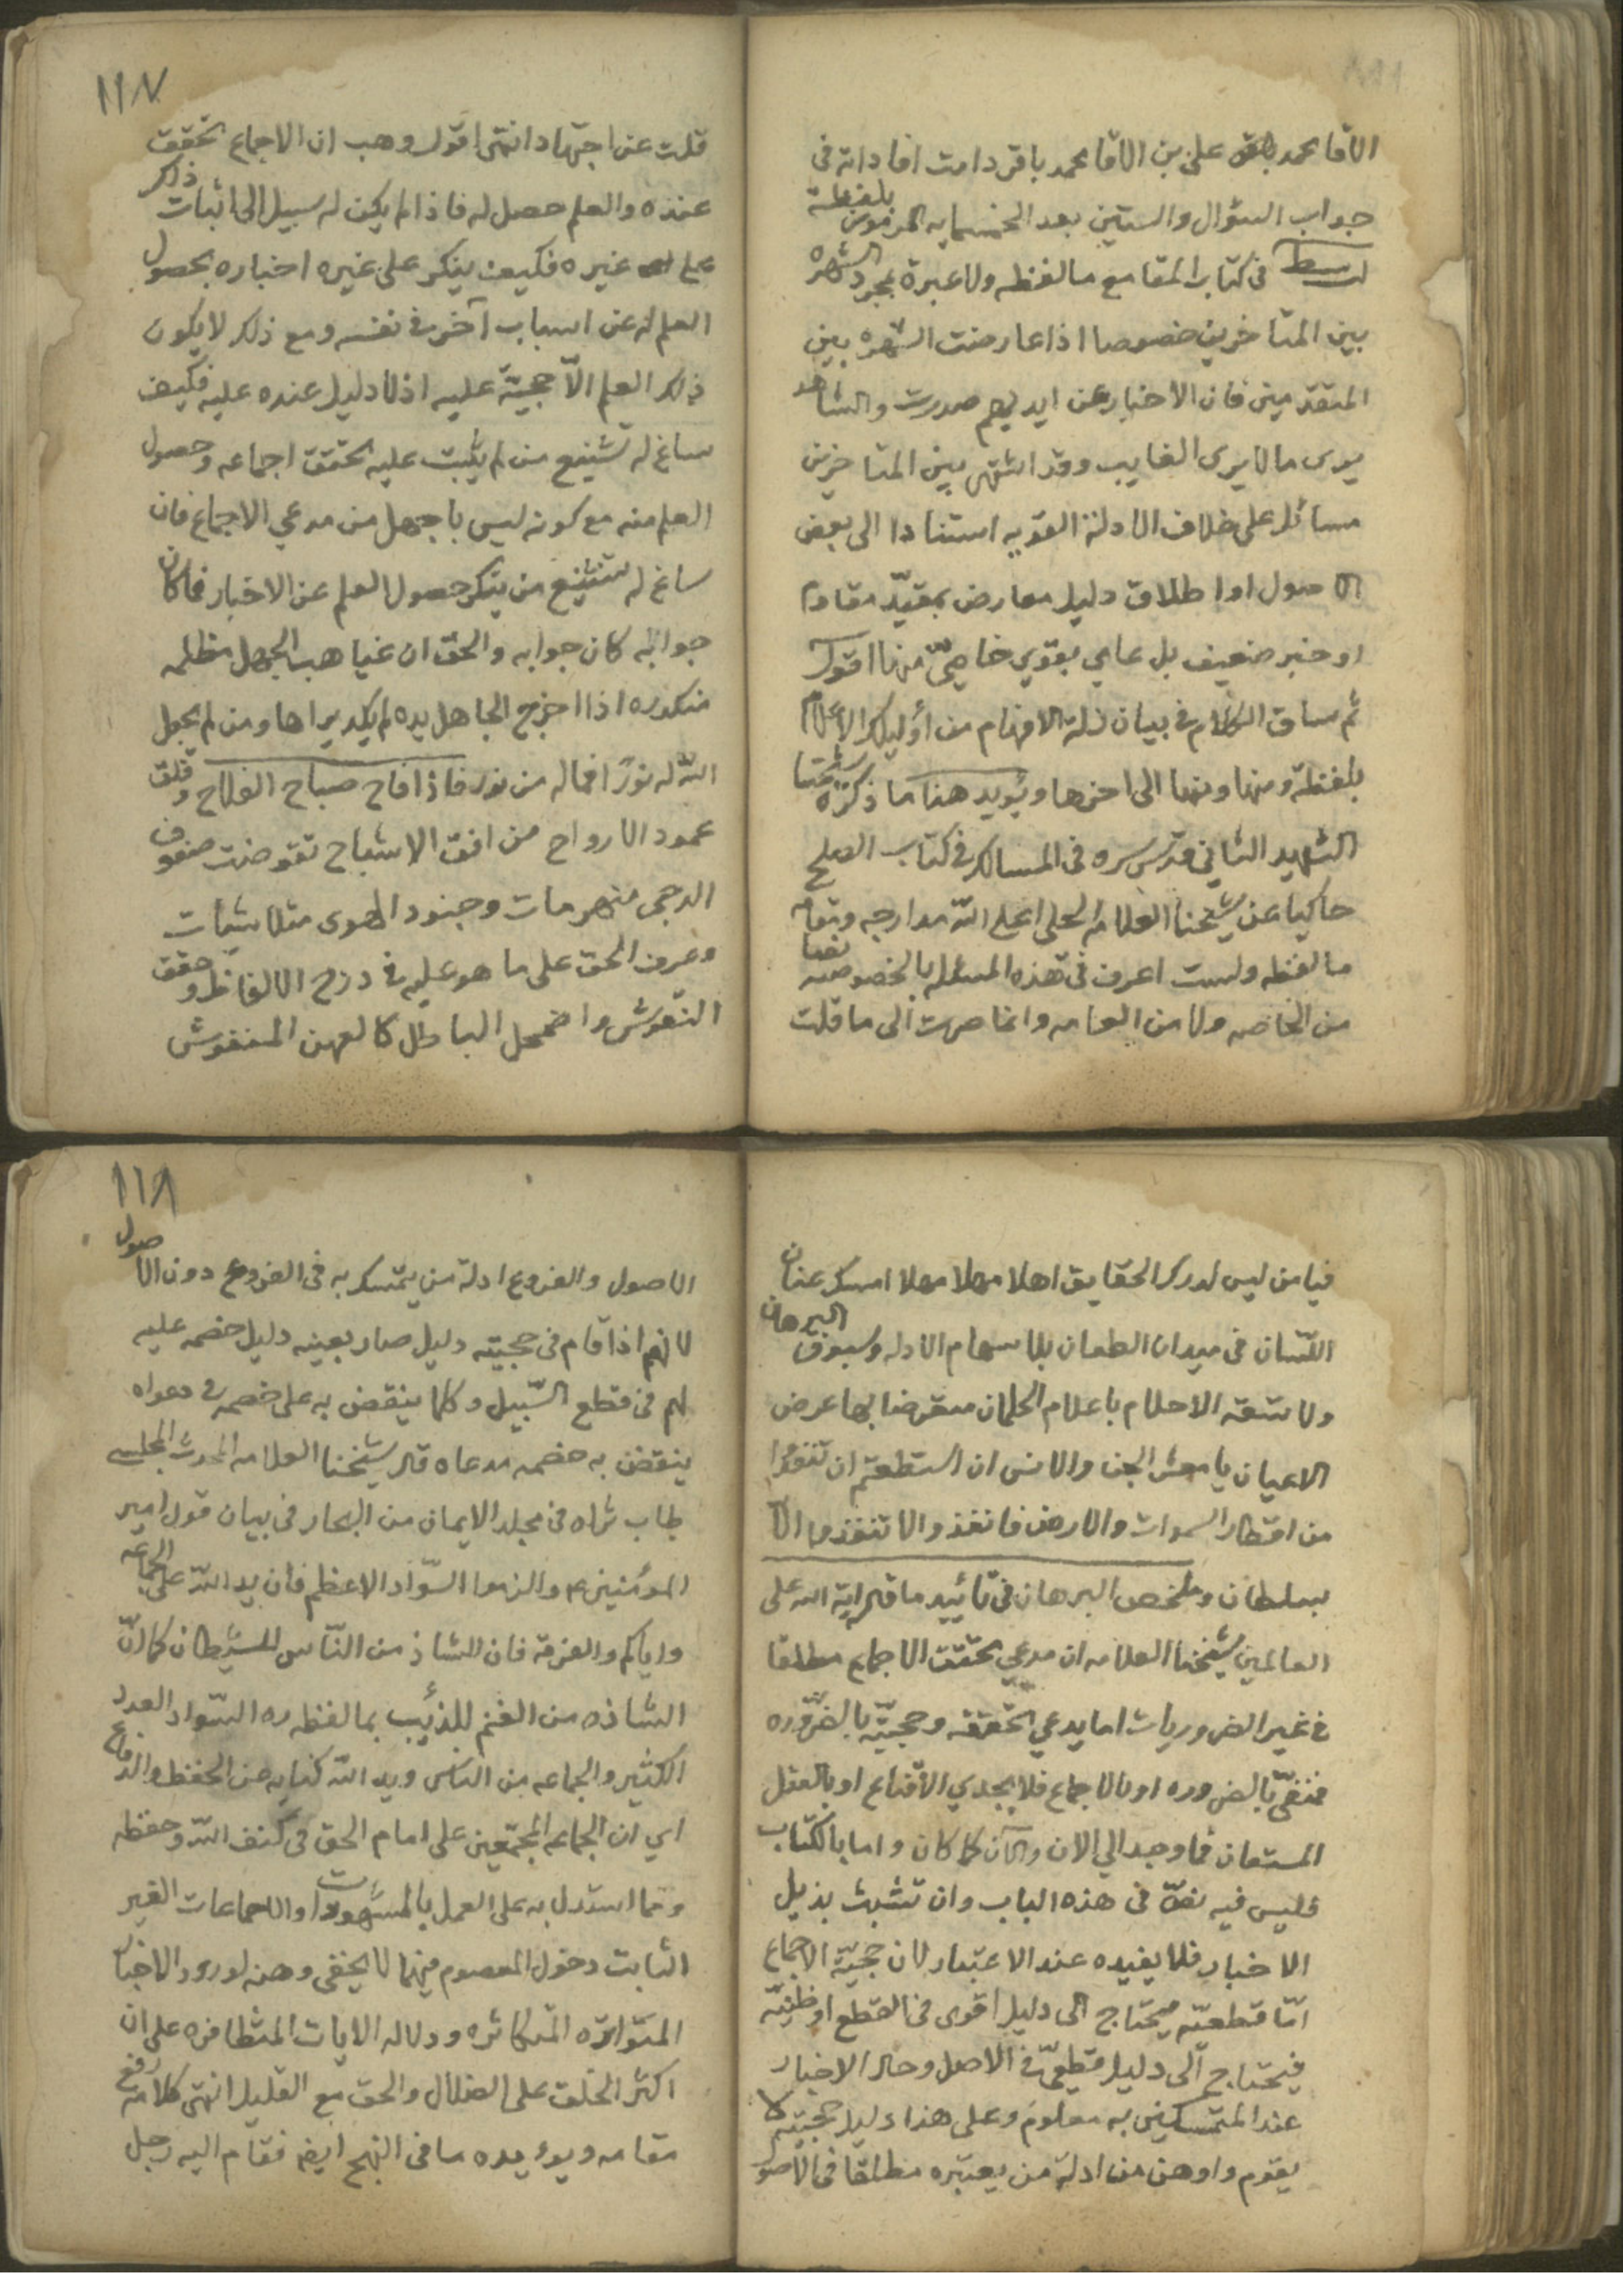 الاقا محمد علی بن الاقا محمد باقر دامت افاداته فی
جواب السؤال والستین بعد الخمسمایه المرموز بلفظة
فی کتاب المقامع مالفظه ولا عبرة بمجرد الشهره
بین المتاخرین خصوصا اذا عارضت الشهره بین
المتقدمین فان الاخبار عن ایدیهم صدرت والشاهد
یری مالا یری الغایب وقد اشتهر بین المتاخرین
مسائل علی خلاف الادلة القویه استنادا الی بعض
الاصول او اطلاق دلیل معارض بمقیّد مقاوم
او خبر ضعیف بل عامی بقوی خاصّی منها اقول
ثم ساق الکلام فی بیان زلة الافهام من أولیک الاعلام
بلفظة ومنها ومنها الی اخرها ویؤید هذا ما ذکره شیخنا
الشهید الثانی قدس سره فی المسالک فی کتاب الصلح
حاکیا عن شیخنا العلامه الحلی اعلی اللّه مدارجه ومقامه
مالفظه ولست اعرف فی هذه المسئله بالخصوصیه نصا
من الخاصه ولا من العامه وانما صرت الی ما قلت
١١٧
قلت عن اجتهاد انتهی اقول وهب ان الاجماع تحقق
عنده والعلم حصل له فاذا لم یکن له سبیل الی اثبات ذلک
علی غیره فکیف ینکر علی غیره اخباره بحصول
العلم له عن اسباب آخر فی نفسه ومع ذلک لا یکون
ذلک العلم الّا حجیّة علیه اذ لا دلیل عنده علیه فکیف
ساغ له تشنیع من لم یثبت علیه تحقق اجماعه وحصول
العلم منه مع کونه لیس باجهل من مدعی الاجماع فان
ساغ له تشنیع من ینکر حصول العلم عن الاخبار فما کان
جوابه کان جوابه والحق ان غیاهب الجهل مظلمه
منکدره اذا اخرج الجاهل یده لم یکد یراها ومن لم یجعل
اللّه له نورًا فماله من نور فاذا فاح صباح الفلاح وفلق
عمود الارواح من افق الاشباح تقوضت صفوف
الدجی منهزمات وجنود الهوی متلاشیات
وعرف الحق علی ما هو علیه فی درج الالفاظ وحقق
النقوش واضمحل الباطل کالعهن المنفوش
فیا من لیس لدرک الحقایق اهلا مهلا مهلا امسک عنان
اللّسان فی میدان الطعان بلا سهام الادله وسیوف البرهان
ولا تشقه الاحلام باعلام الحلمان متعرضا بها عرض
الاعیان یا معشر الجن والانس ان استطعتم ان تنفذوا
من اقطار السموات والارض فانفذوا لا تنفذوا الّا
بسلطان وملخص البرهان فی تأیید ما قاله ایة الله علی
العالمین شیخنا العلامه ان مدعی تحقق الاجماع مطلقا
فی غیر الضروریات اما یدعی تحققه وحجیّته بالضّروره
فمنفیّ بالضروره او بالاجماع فلا یجدی الاقناع او بالعقل
المستعان فما وجد الی الان والآن کما کان واما بالکتاب
فلیس فیه نصّ فی هذه الباب وان تشبث بذیل
الاخبار فلا یفیده عند الاعتبار لان حجیّة الاجماع
امّا قطعیّه فیحتاج الی دلیل اقوی فی القطع او ظنیّه
فیحتاج الی دلیل قطعیّ فی الاصل وحال الاخبار
عند المتمسکین به معلوم وعلی هذا دلیل حجیته لا
یقوم واوهن من ادلة من یعتبره مطلقا فی الاصول
١١٨
الاصول والفروع ادلة من یتمسک به فی الفروع دون الاصول
لانهم اذا قام فی حجیته دلیل صار بعینه دلیل خصمه علیه
لهم فی قطع السّبیل وکلما ینقض به علی خصمه فی دعواه
ینقض به خصمه مدعاه قال شیخنا العلامه المحدث المجلسی
طاب ثراه فی مجلد الایمان من البحار فی بیان قول امیر
المؤمنین ع والزموا السّواد الاعظم فان ید اللّه علی الجماعه
وایاکم والفرقة فان الشاذ من النّاس للشیطان کما انّ
الشاذه من الغنم للذئیب بما لفظه ره السّواد العدد
الکثیر والجماعه من الناس وید اللّه کنایه عن الحفظ والدفاع
ای ان الجماعه المجتمعین علی امام الحق فی کنف اللّه وحفظه
وما استدل به علی العمل بالمشهورات والاجماعات الغیر
الثابت دخول المعصوم فیها لا یخفی وهنه لورود الاخبار
المتواتره المتکاثره ودلاله الایات المتظافره علی ان
اکثر الخلق علی الضلال والحق مع القلیل انتهی کلامه رفع
مقامه ویوءیده ما فی النهج ایضا فقام الیه رجل